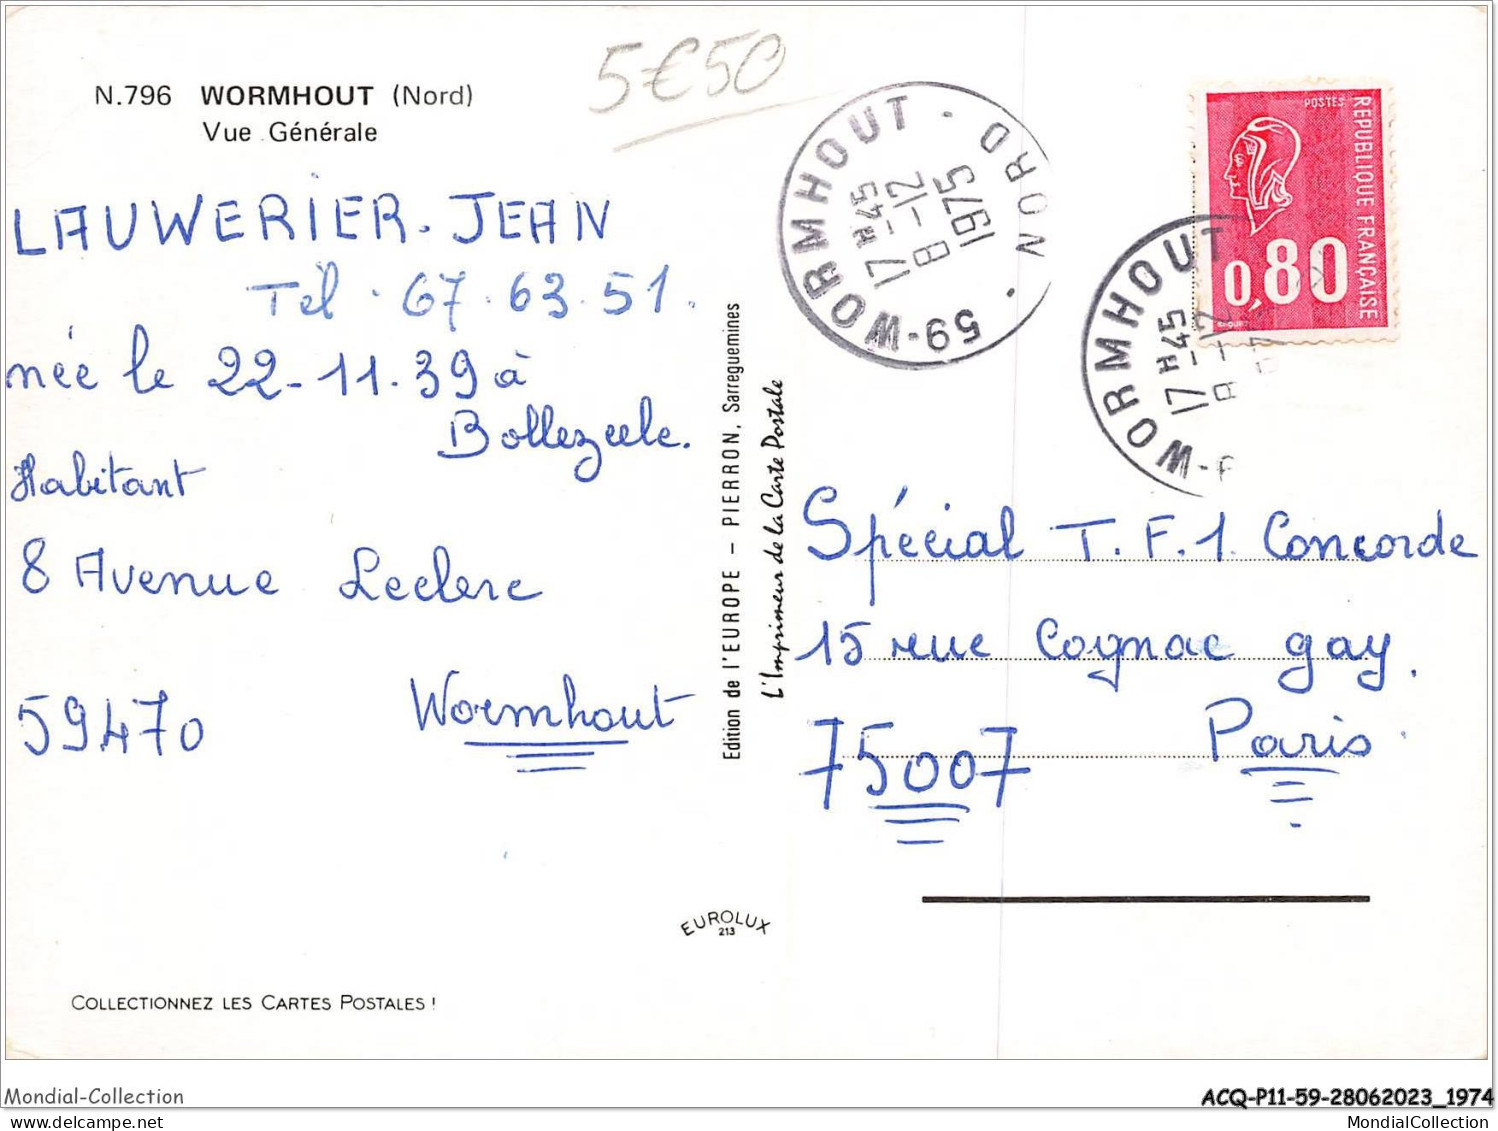 5€50
N.796 WORMHOUT (Nord)
Vue Générale
LAUWERIER. JEAN
Tél. 67.63.51.
née le 22-11.39 à
Bollezeele.
Habitant
8 Avenue Leclerc
Wormhout
59470
Edition de l'EUROPE – PIERRON, Sarreguemines
L'Imprimeur de la Carte Postale
59-WORMHOUT - NORD
17H45
8-12
1975
POSTES
REPUBLIQUE FRANÇAISE
0,80
WORMHOUT
17H45
8-12
Spécial T.F.1. Concorde
15 rue Cognac gay.
75007 Paris
EUROLUX
213
COLLECTIONNEZ LES CARTES POSTALES !
Mondial-Collection
ACQ-P11-59-28062023_1974
MondialCollection